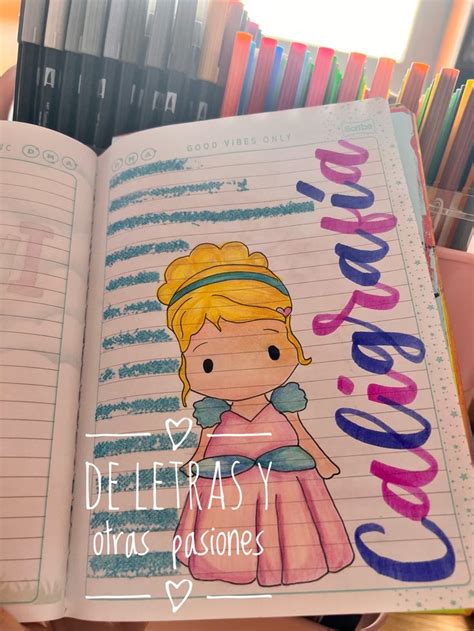 GOOD VIBES ONLY
Scribe
Caligrafía
DE LETRAS Y
otras pasiones